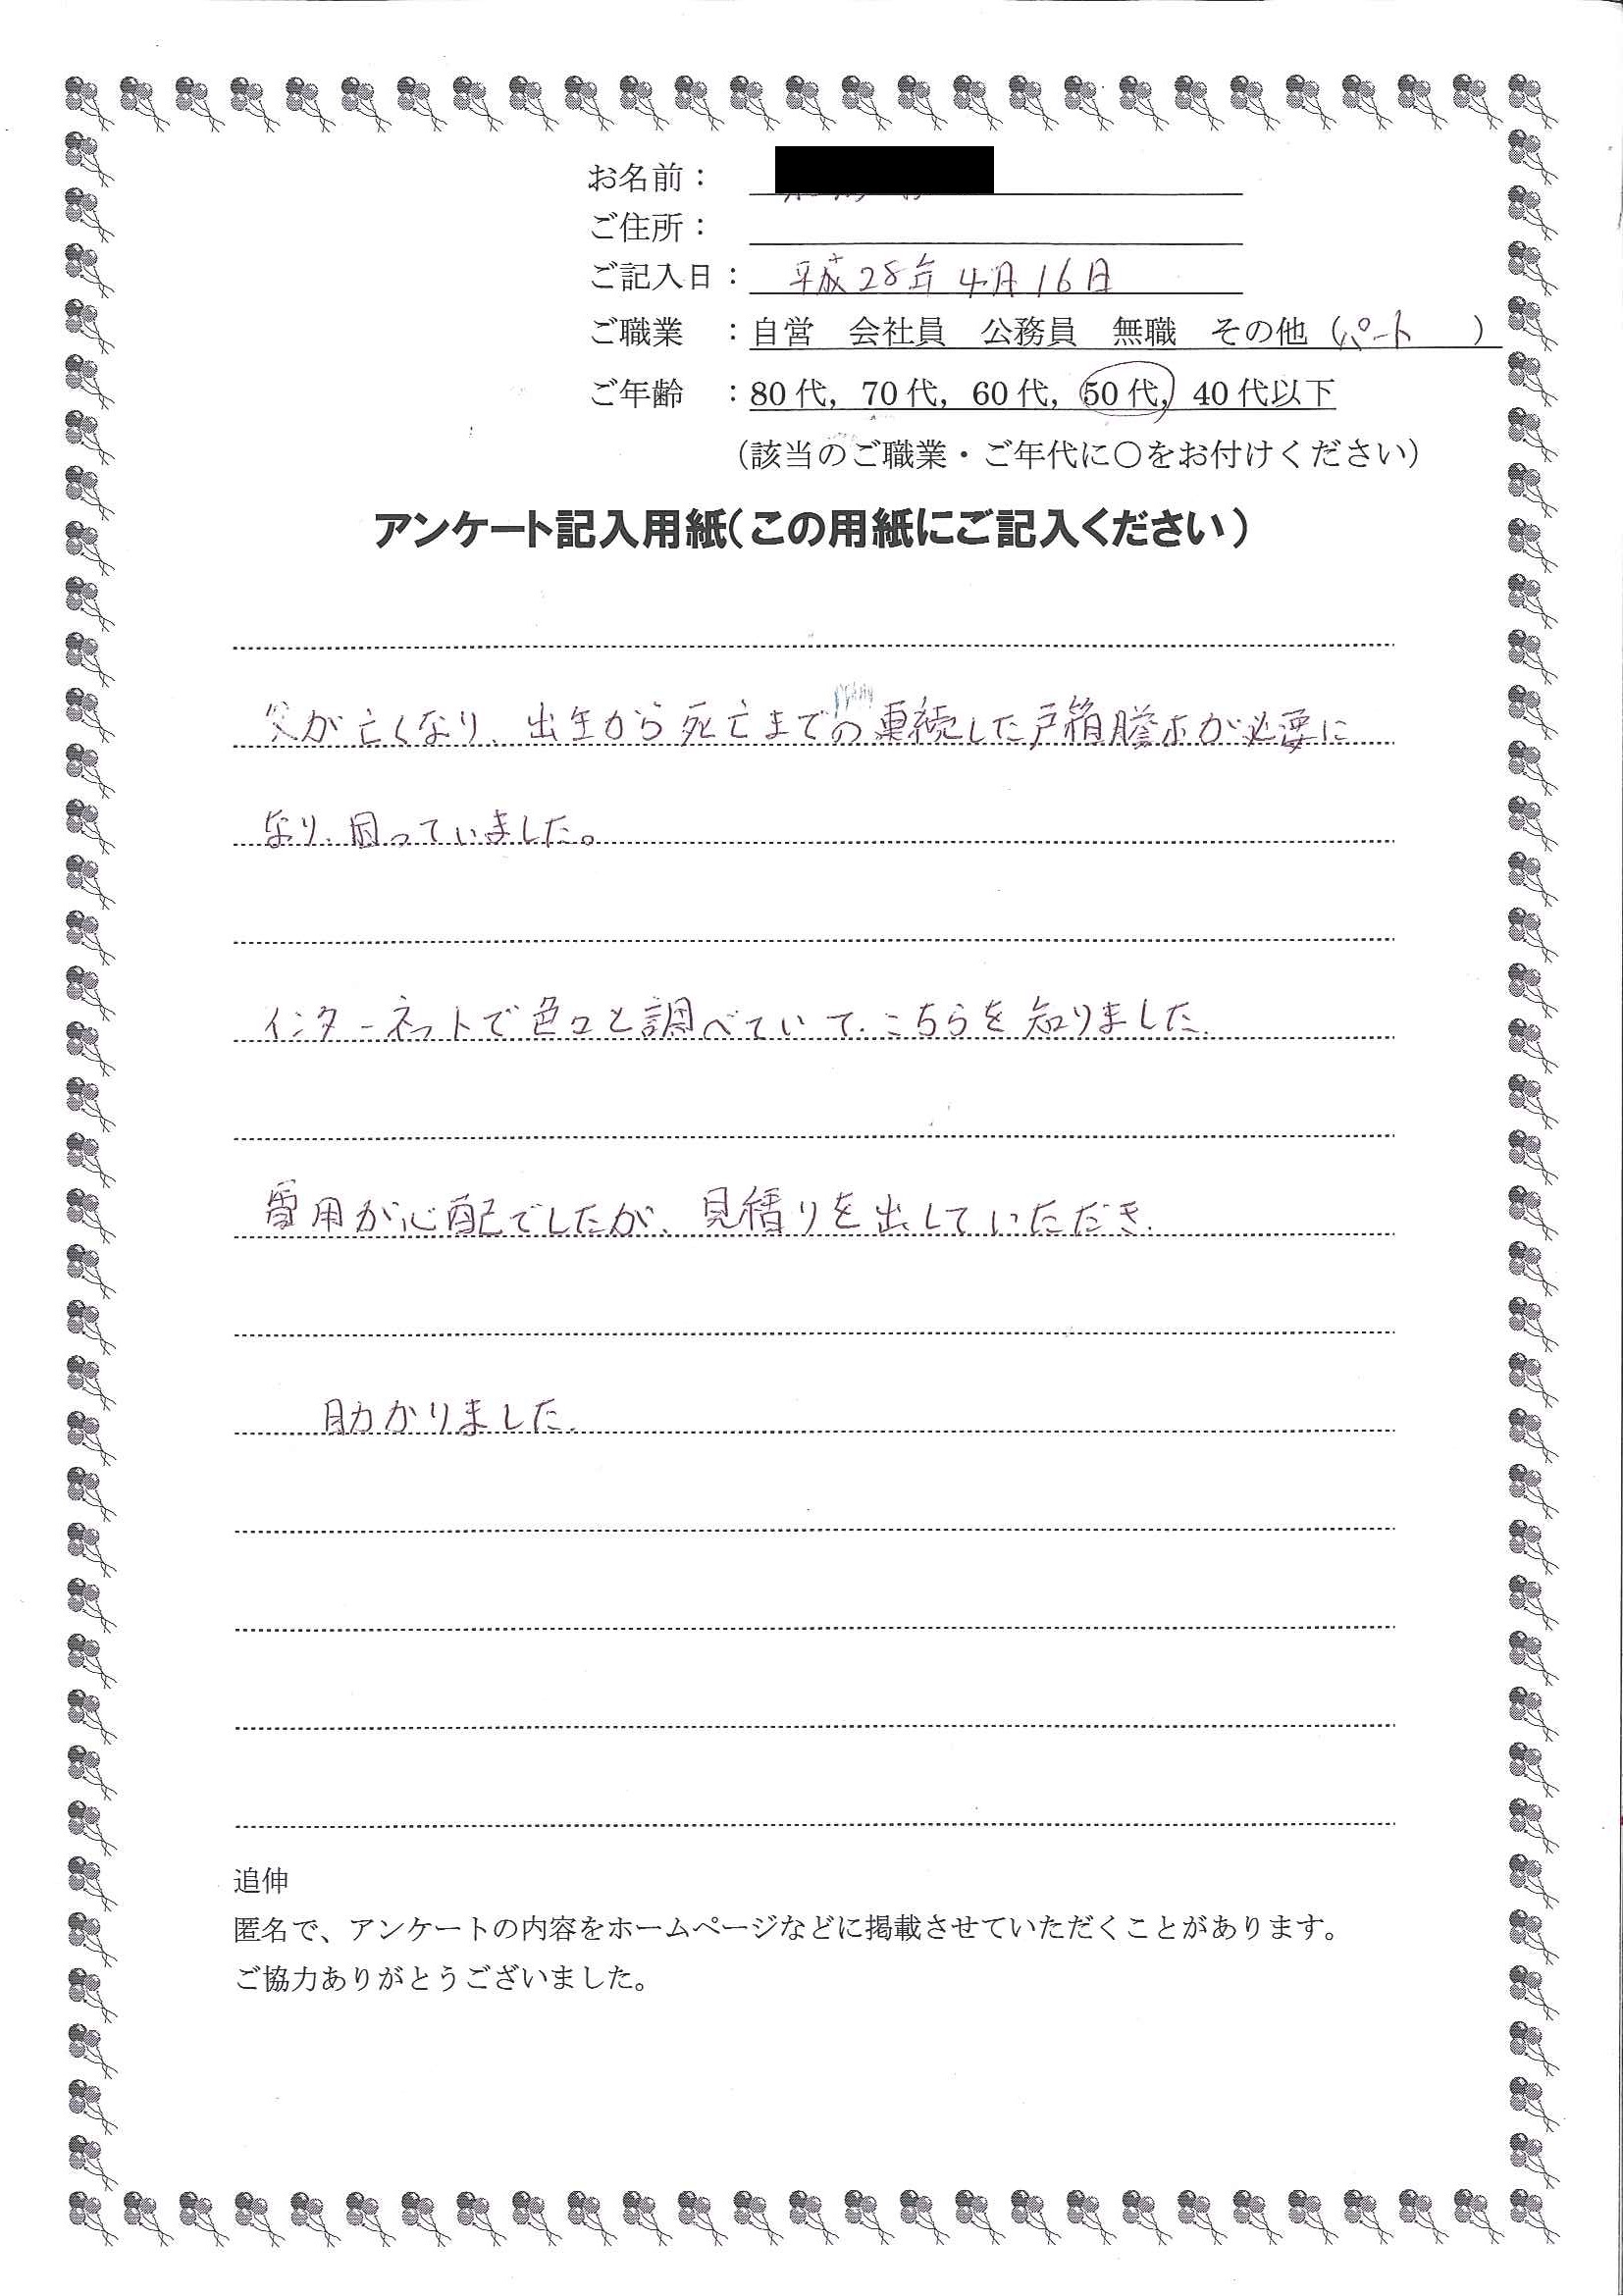 お名前：
ご住所：
ご記入日： 平成28年4月16日
ご職業 ：自営 会社員 公務員 無職 その他（パート ）
ご年齢 ：80代，70代，60代，50代，40代以下
（該当のご職業・ご年代に〇をお付けください）
アンケート記入用紙（この用紙にご記入ください）
父が亡くなり、出生から死亡までの連続した戸籍謄本が必要に
なり、困っていました。
インターネットで色々と調べていて、こちらを知りました。
費用が心配でしたが、見積りを出していただき、
助かりました。
追伸
匿名で、アンケートの内容をホームページなどに掲載させていただくことがあります。
ご協力ありがとうございました。